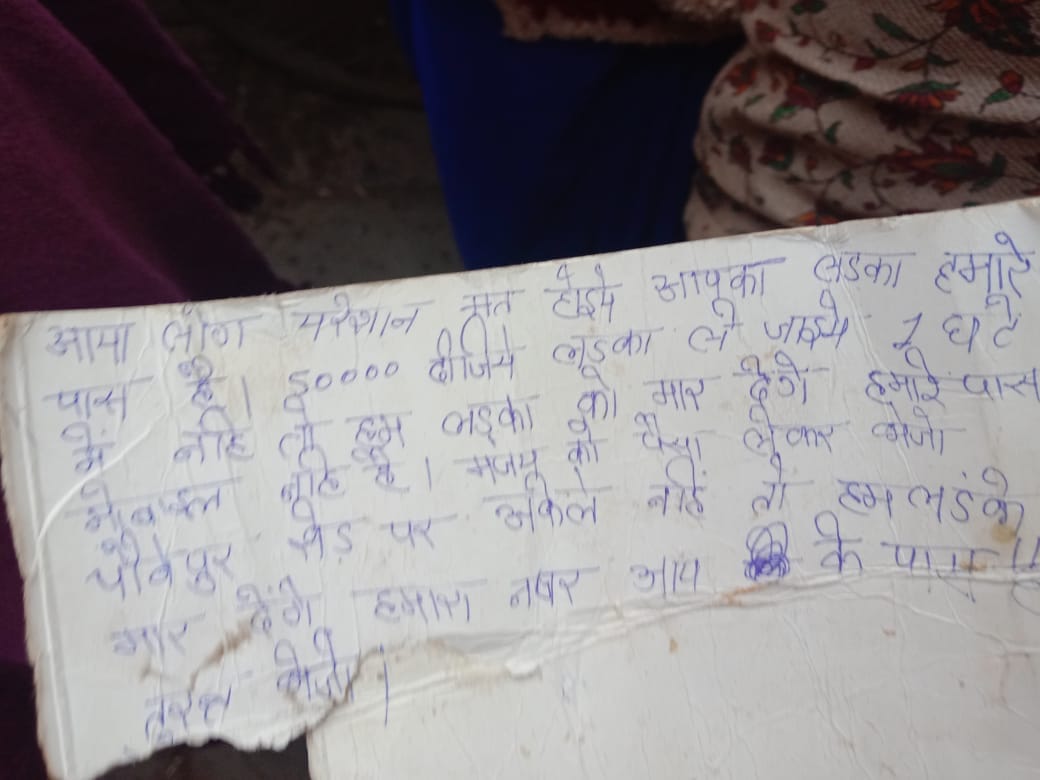 आपा लोग परेशान मत होइये आपका लडका हमारे
पास है। 50000 दीजिये लडका ले जाइये 1 घंटे
में नहि तो हम लड्का को मार देंगे हमारे पास
मोबाइल नहि है। को पैसा लेकर भेजो
पर अकेले नहिं तो हम लडंके
मार देंगे हमारा नंबर आप के पास
तुरन्त भेजो।